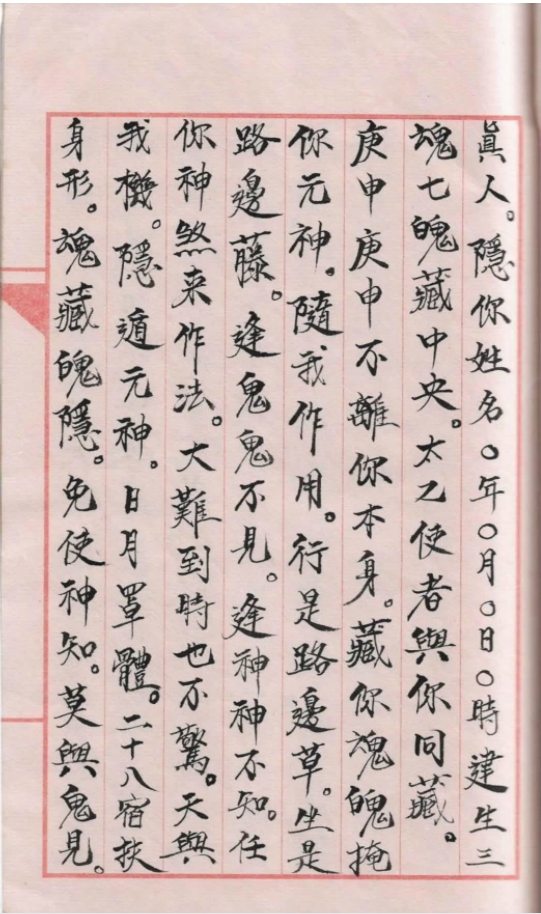 真人。隱你姓名〇年〇月〇日〇時建生三
魂七魄藏中央。太乙使者與你同藏。
庚申庚申不離你本身。藏你魂魄掩
你元神。隨我作用。行是路邊草。坐是
路邊藤。逢鬼鬼不見。逢神神不知。任
你神煞來作法。大難到時也不驚。天與
我機。隱遁元神。日月罩體。二十八宿挾
身形。魂藏魄隱。免使神知。莫與鬼見。